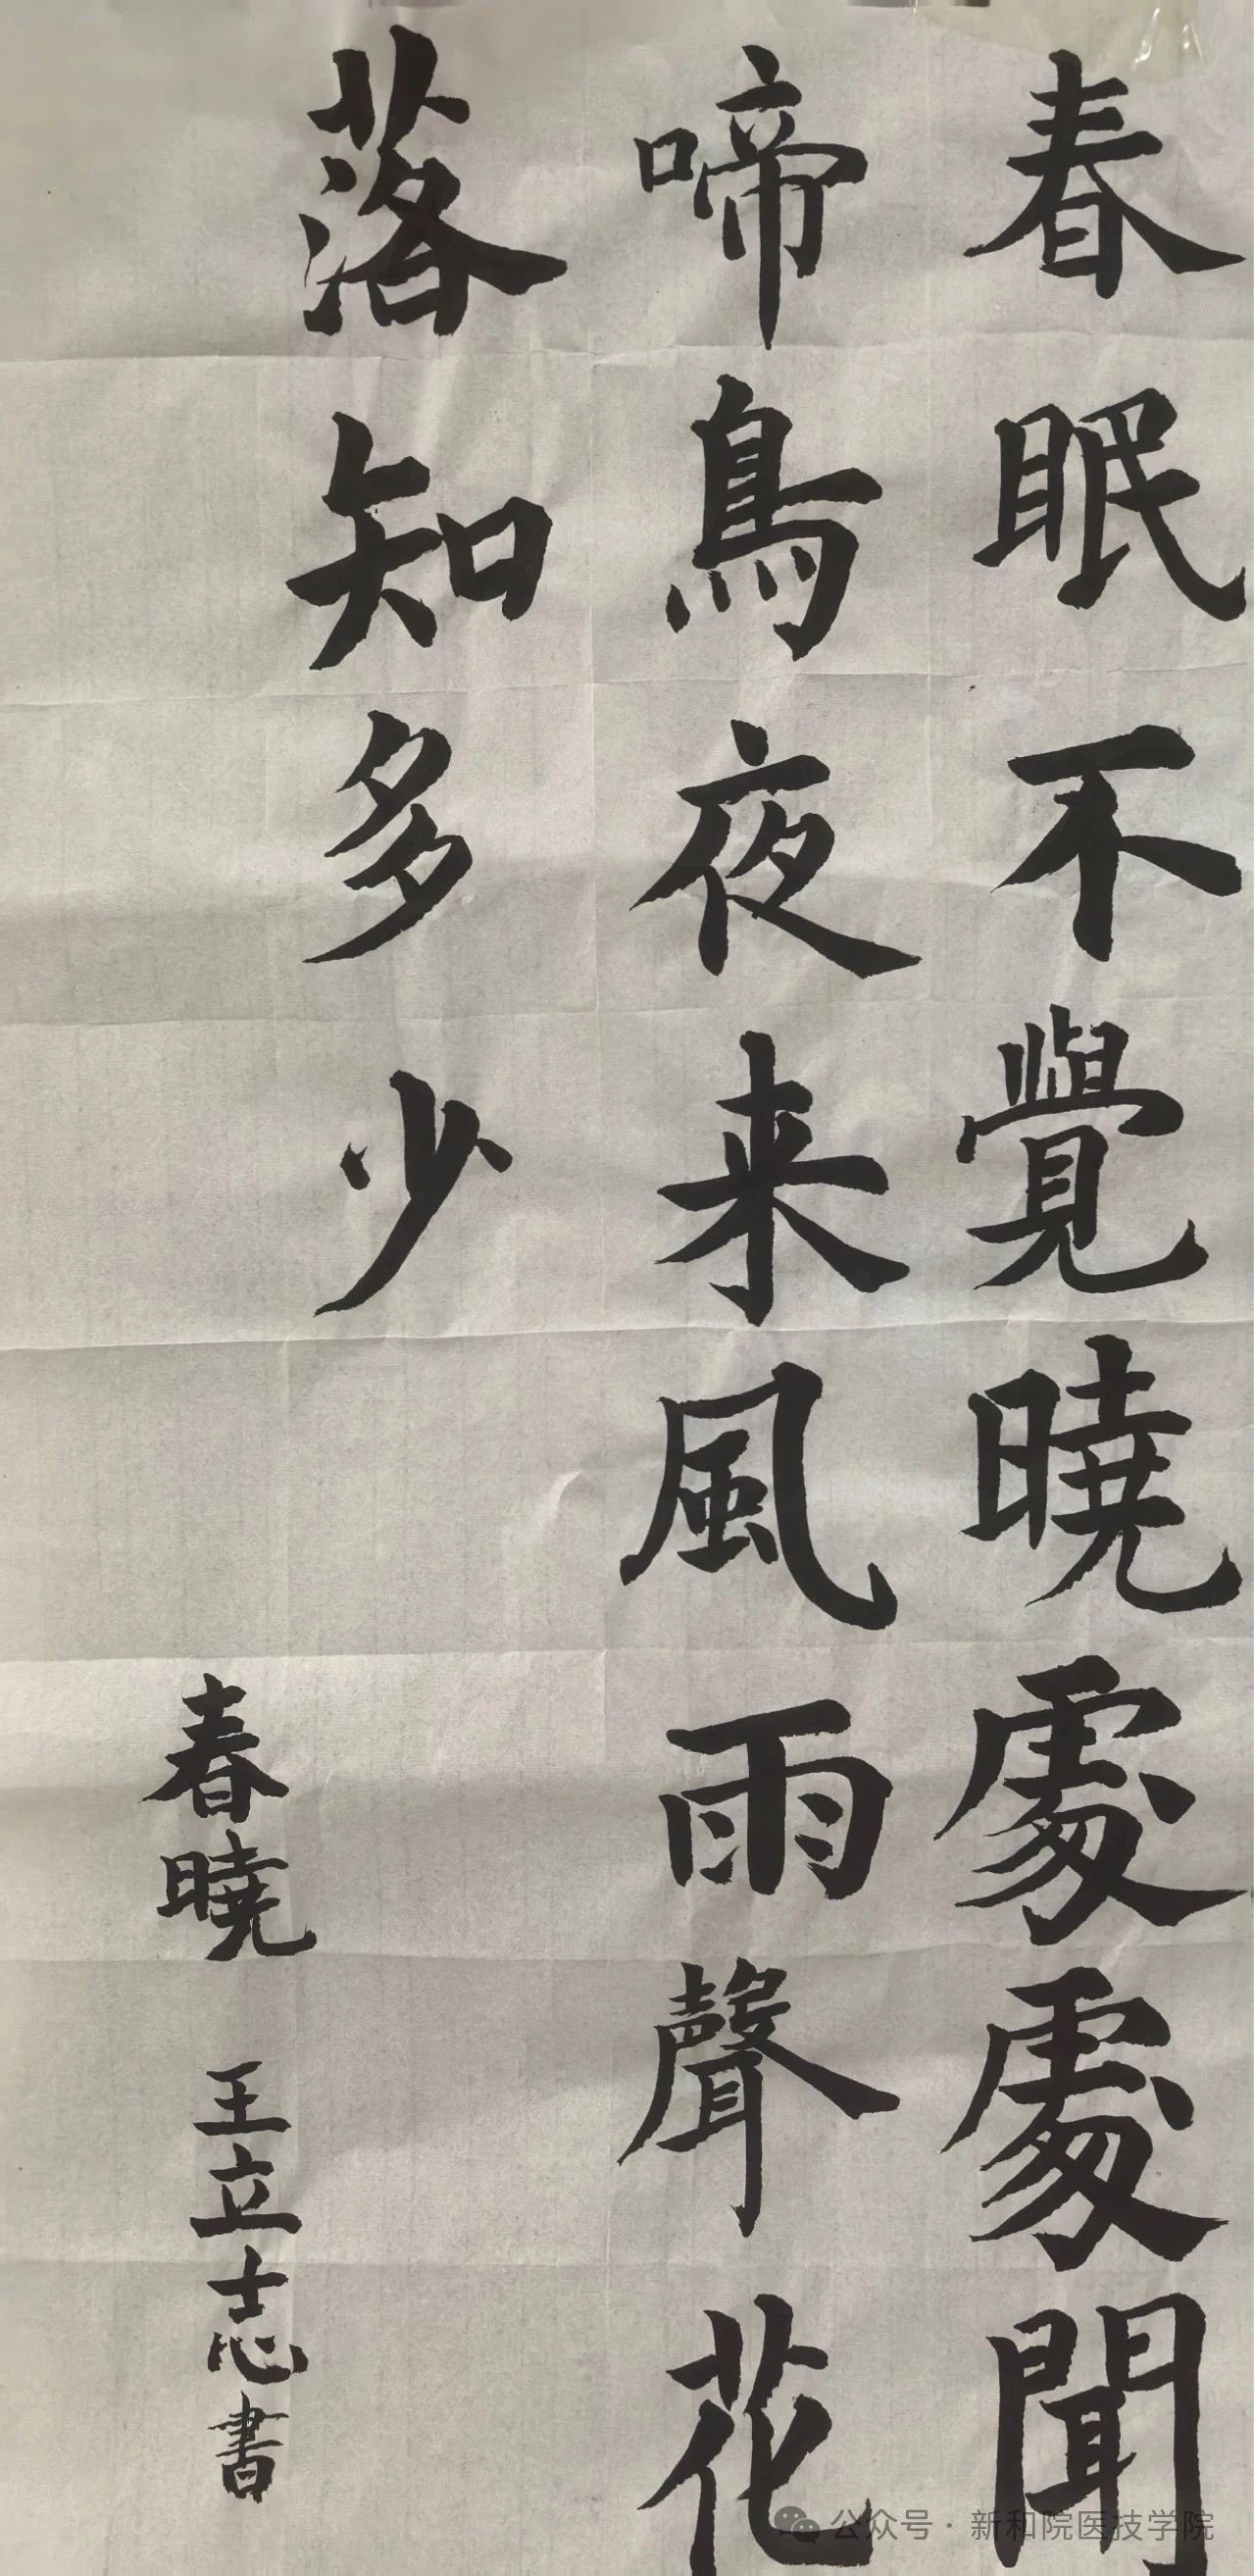 春眠不覺曉處處聞
啼鳥夜来風雨聲花
落知多少
春曉 王立志書
公众号·新和院医技学院